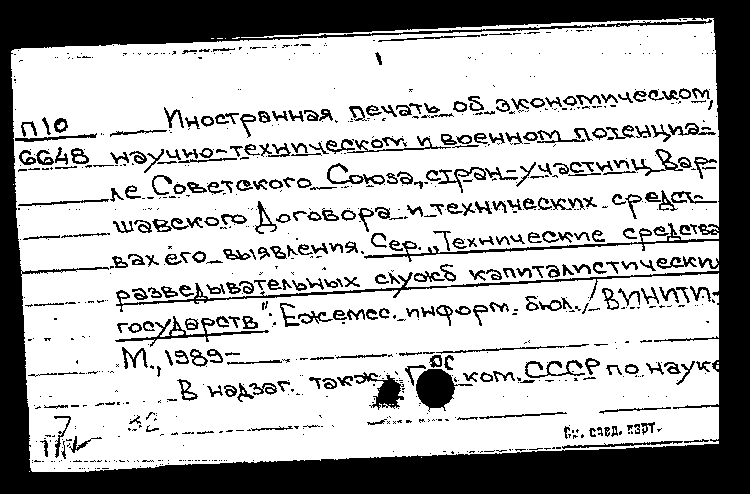 П10 Иностранная печать об экономическом,
6648 научно-техническом и военном потенциа-
ле Советского Союза, стран-участниц Вар-
шавского Договора и технических средст-
вах его выявления. Сер. „Технические средства
разведывательных служб капиталистически
государств": Ежемес. информ. бюл. / ВИНИТИ.-
М., 1989-
В надзаг. также: Гос ком. СССР по науке
7 32
См. след. карт.